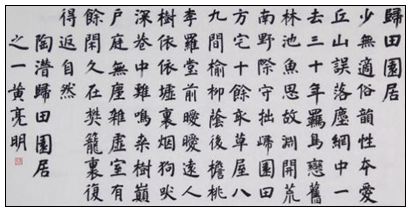 歸田園居
少無適俗韻性本愛
丘山誤落塵網中一
去三十年羈鳥戀舊
林池魚思故淵開荒
南野際守拙歸園田
方宅十餘畝草屋八
九間榆柳蔭後檐桃
李羅堂前曖曖遠人
樹依依墟裏烟狗吠
深巷中雞鳴桑樹巔
戶庭無塵雜虛室有
餘閑久在樊籠裏復
得返自然
陶潛歸田園居
之一黃亮明